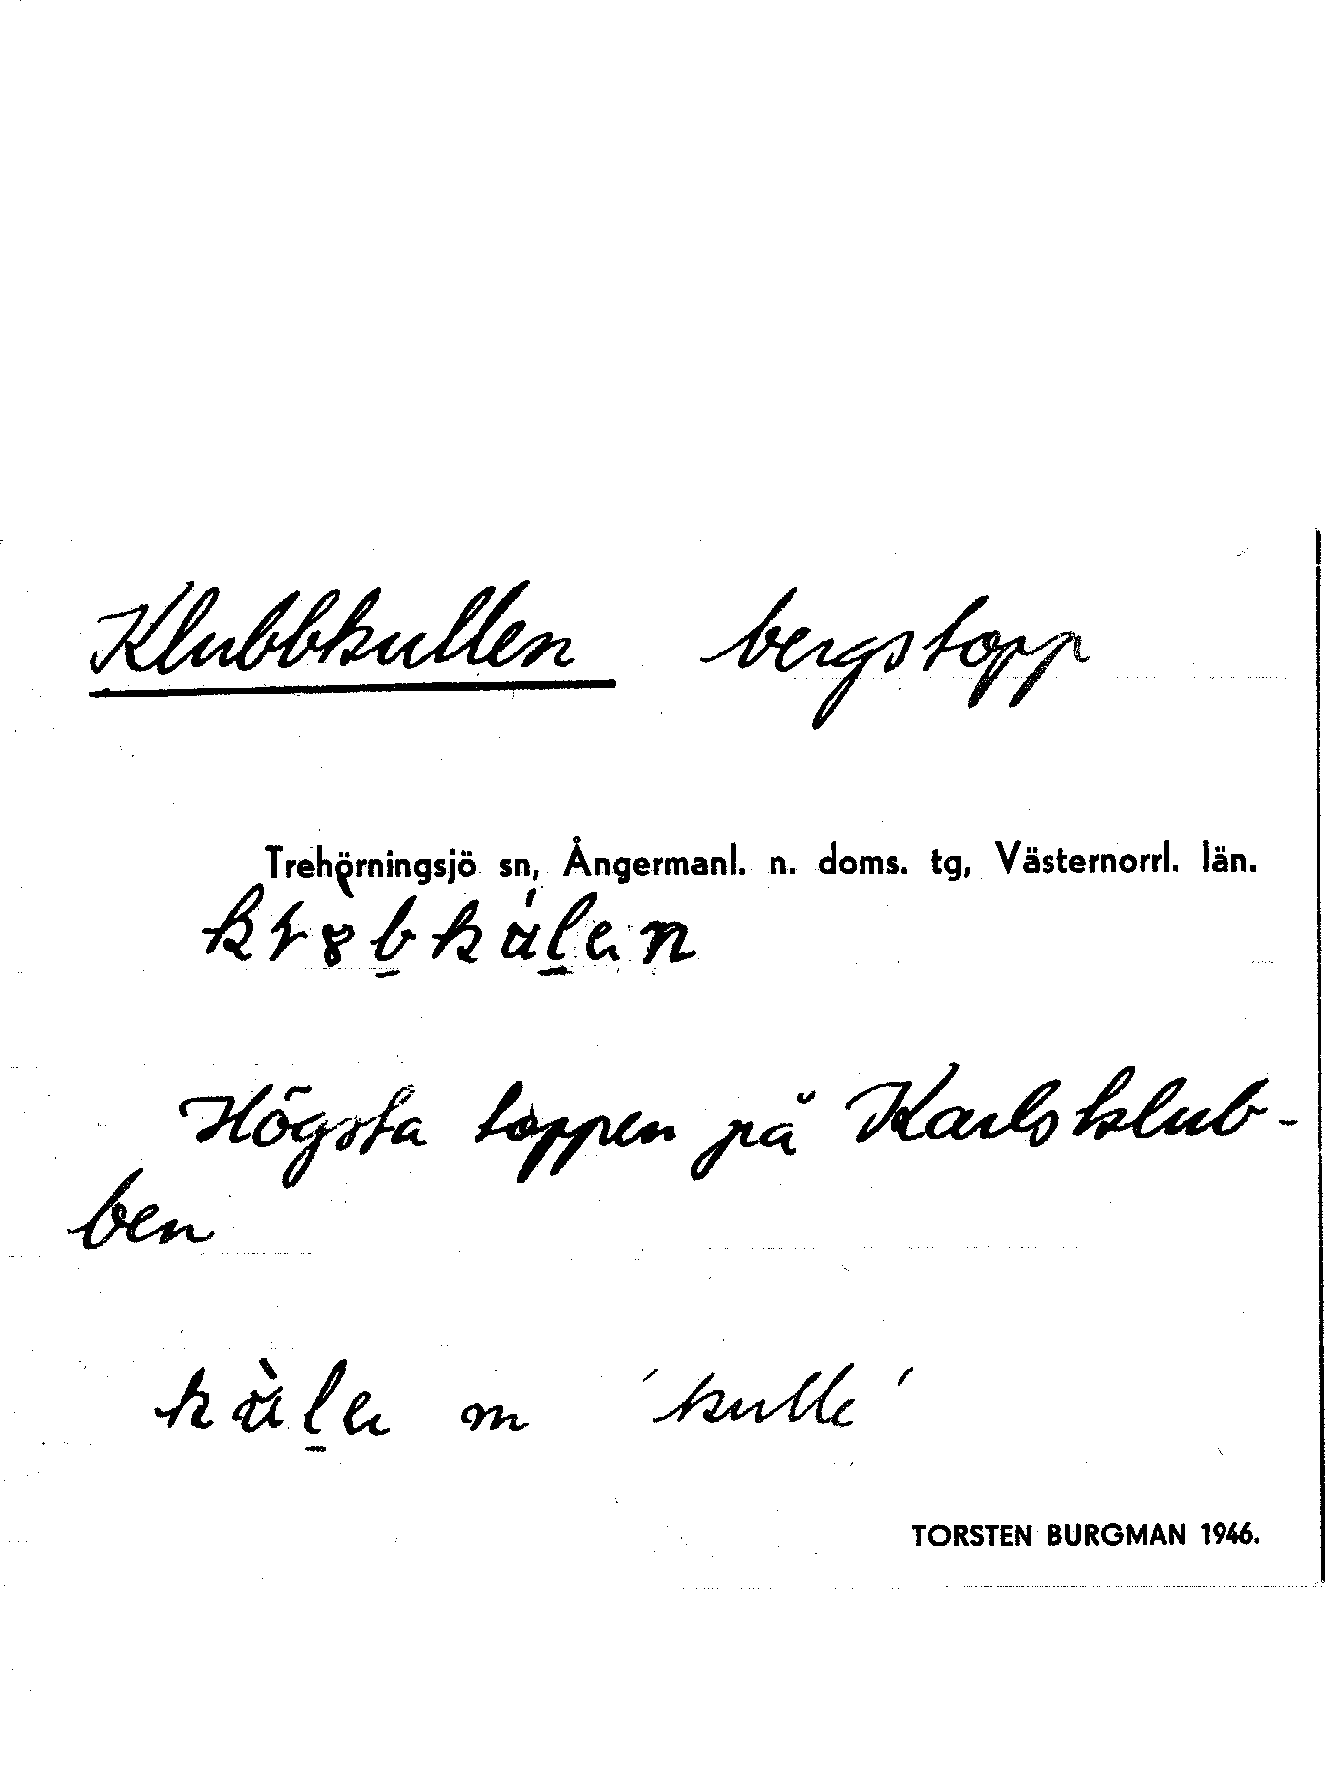 Klubbkullen bergstopp
Trehörningsjö sn, Ångermanl. n. doms. tg, Västernorrl. län.
Högsta toppen på Karlsklub-
ben
m 'kulle'
TORSTEN BURGMAN 1946.